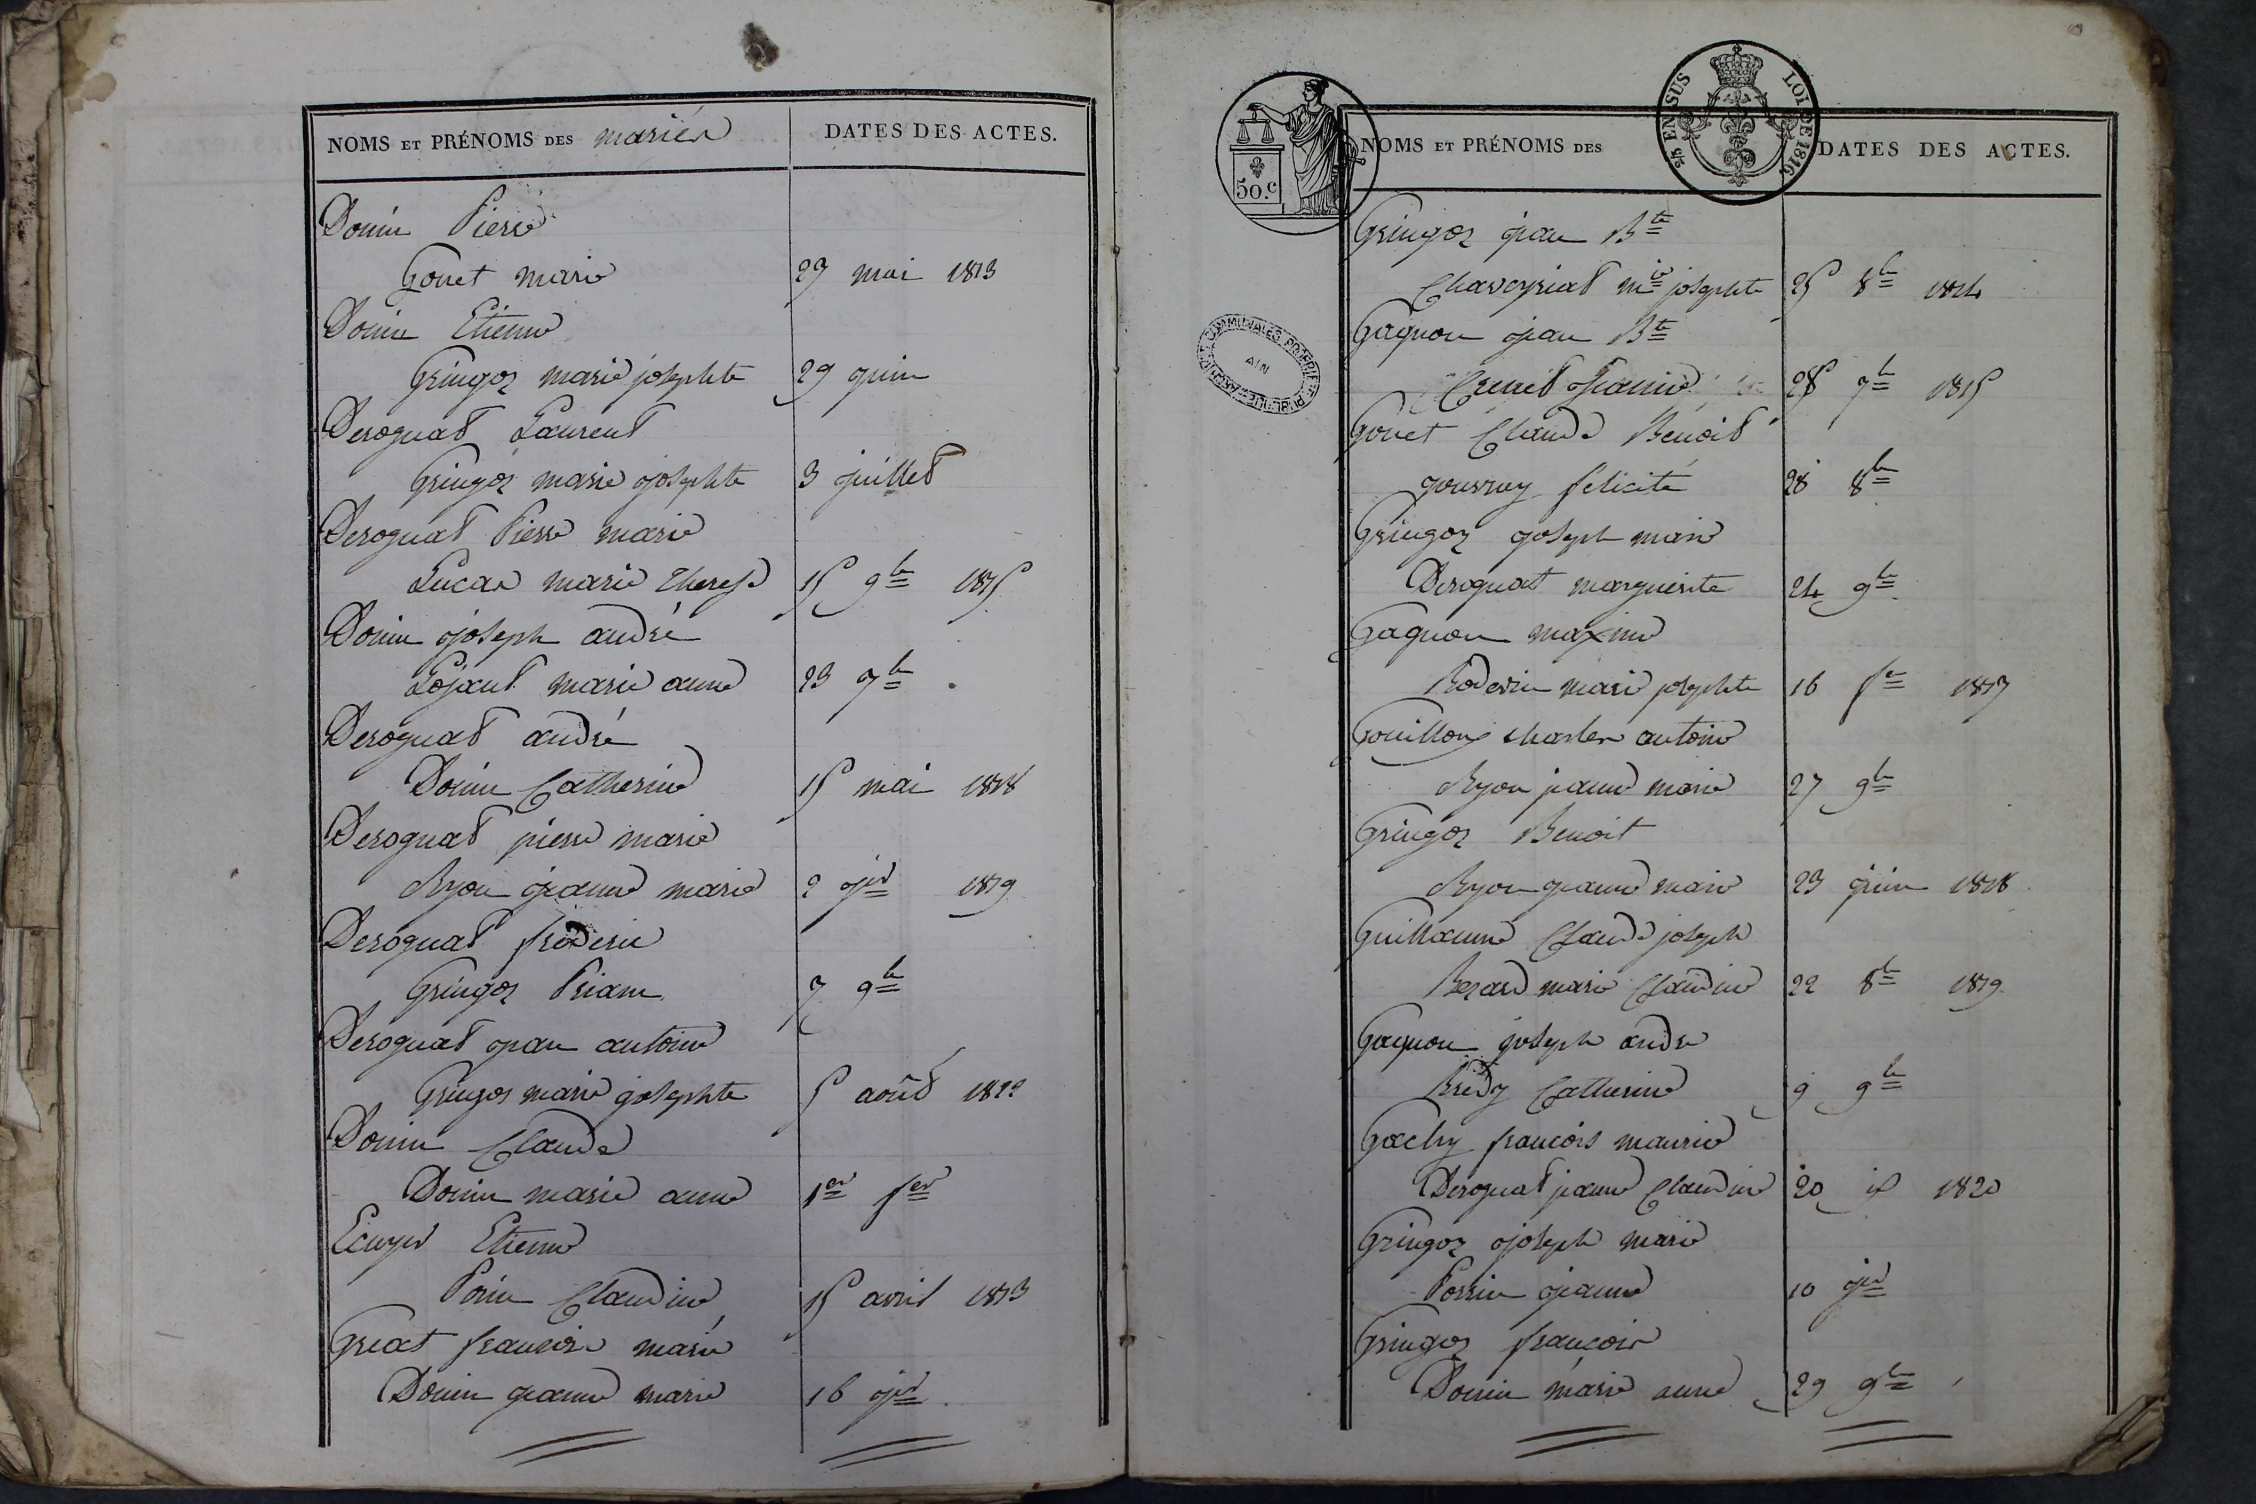 NOMS ET PRÉNOMS DES mariés
DATES DES ACTES.
Donin Pierre
Gouet marie 29 mai 1813
Donin Etienne
Gringoz marie josephte 29 juin
Deroguat Laurent
Gringoz marie josephte 3 juillet
Deroguat Pierre marie
Lucas marie therese 15 9bre 1815
Donin joseph andré
Lojaut marie anne 23 7bre
Deroguat andré
Donin Catherine 15 mai 1818
Deroguat pierre marie
Ryon jeanne marie 2 jer 1819
Deroguat frederic
Gringoz Priam 7 9bre
Deroguat jean antoine
Gringoz marie josephte 5 août 1822
Donin Claude
Donin marie anne 1er fer
Ecuyer Etienne
Perin Claudine 15 avril 1813
Great françois marie
Donin jeanne marie 16 jer
NOMS ET PRÉNOMS DES
DATES DES ACTES.
50.c
2/5 EN SUS LOI DE 1816
ARCHIVES COMMUNALES PROPRIETE PUBLIQUE
AIN
Gringoz jean Bte
Chaveyriat mie josephte 25 8bre 1814
Gagnon jean Bte
Jeanne 28 7bre 1815
Gouet Claude Benoit
gouvray félicité 28 8bre
Gringoz joseph marie
Deroguat marguerite 24 9bre
Gagnon maxime
Boderin marie josephte 16 fer 1817
Gouilloux charles antoine
Ryon jeanne marie 27 9bre
Gringoz Benoit
Ryon jeanne marie 23 juin 1818
Guillaume Claude joseph
Berard marie Claudine 22 8bre 1819
Gagnon joseph andre
Bredy Catherine 9 9bre
Gachy françois maurice
Deroguat jeanne Claudine 20 1820
Gringoz joseph marie
Perrin jeanne 10 jer
Gringoz françois
Donin marie anne 29 9bre